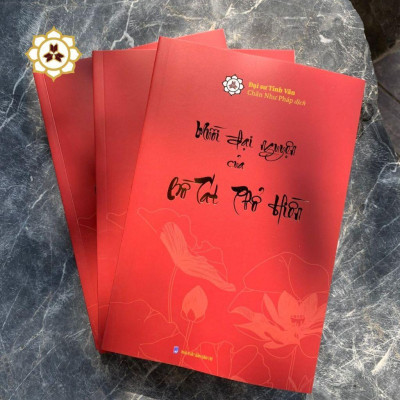 Đại sư Tinh Vân
Châu Như Pháp dịch
Mười đại nguyện
của
Bồ Tát Phổ Hiền